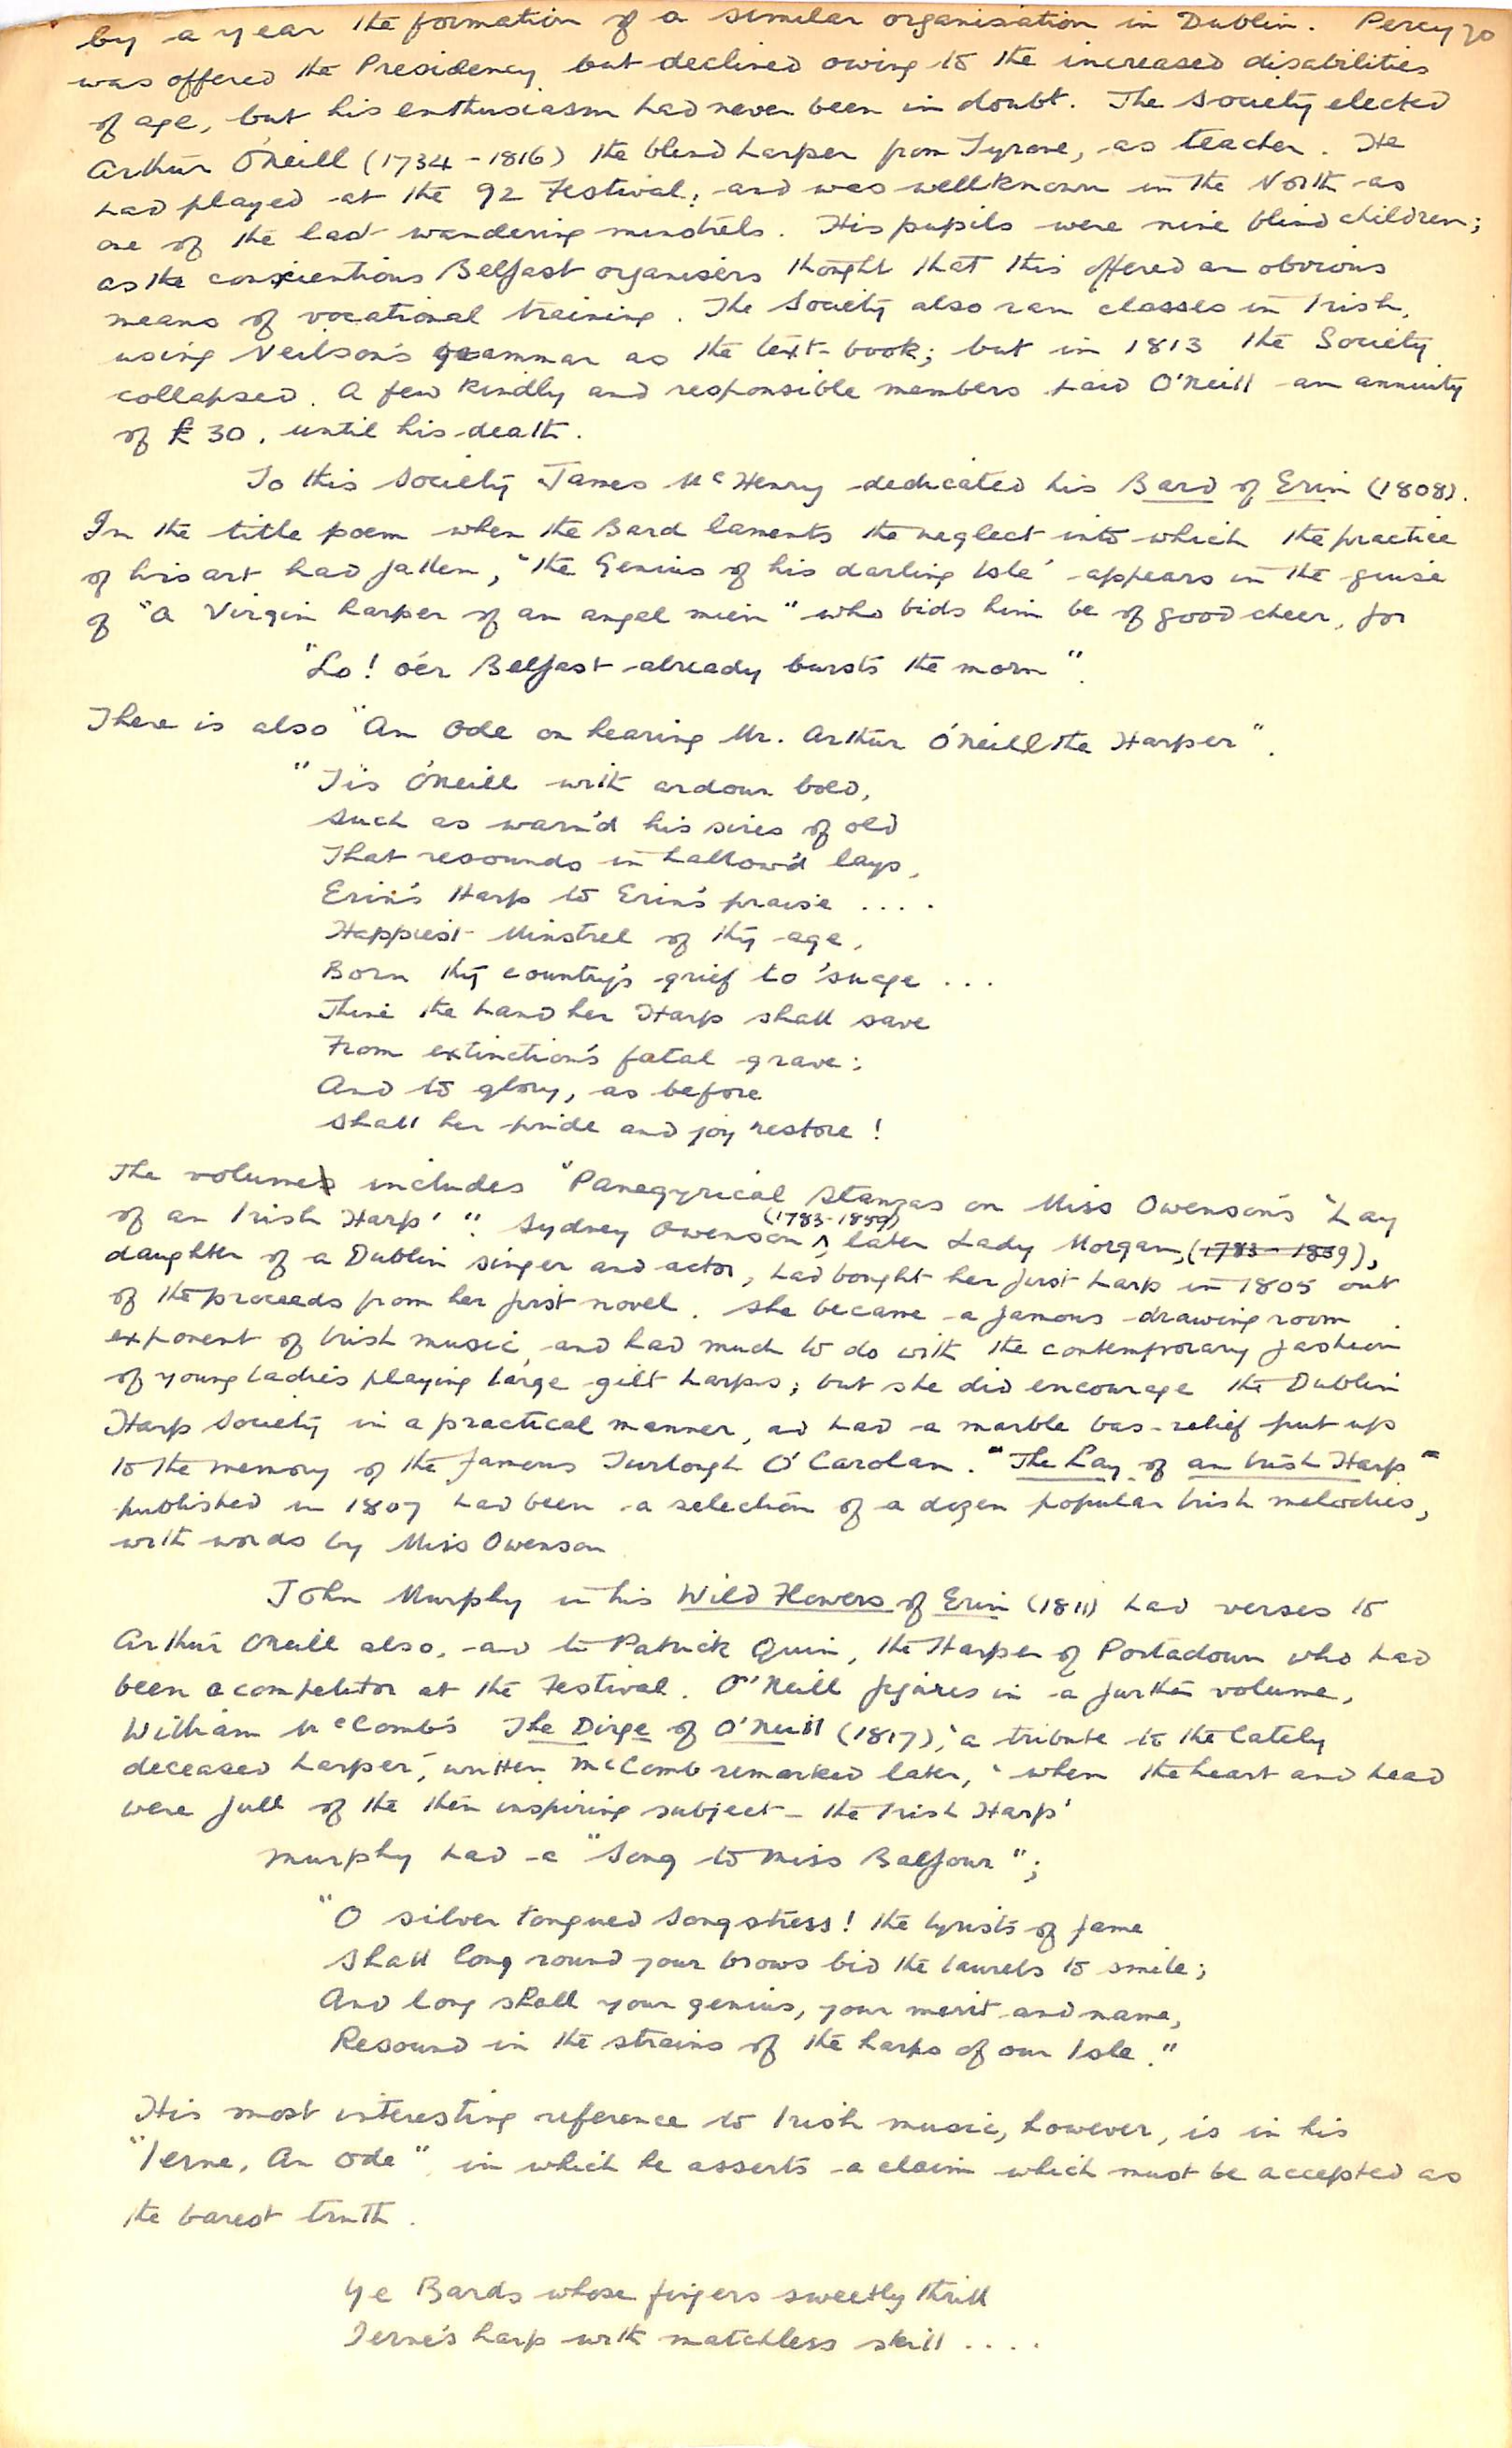 by a year the formation of a similar organisation in Dublin. Percy 70
was offered the Presidency but declined owing to the increased disabilities
of age, but his enthusiasm had never been in doubt. The Society elected
Arthur O'Neill (1734-1816) the blind harper from Tyrone, as teacher. He
had played at the 92 Festival, and was wellknown in the North as
one of the last wandering minstrels. His pupils were nine blind children;
as the conscientious Belfast organisers thought that this offered an obvious
means of vocational training. The Society also ran classes in Irish,
using Neilson's grammar as the text-book; but in 1813 the Society
collapsed. A few kindly and responsible members paid O'Neill an annuity
of £30, until his death.
To this Society James McHenry dedicated his Bard of Erin (1808).
In the title poem when the Bard laments the neglect into which the practice
of his art had fallen, "the Genius of his darling Isle' appears in the guise
of "a Virgin harper of an angel mien" who bids him be of good cheer, for
"Lo! o'er Belfast already bursts the morn".
There is also "An Ode on hearing Mr. Arthur O'Neill the Harper".
"Tis O'Neill with ardour bold,
Such as warm'd his sires of old
That resounds in hallow'd lays,
Erin's Harp to Erin's praise ....
Happiest Minstrel of thy age,
Born thy country's grief to 'suage ...
Thine the hand her Harp shall save
From extinction's fatal grave;
And to glory, as before
Shall her pride and joy restore!
The volume includes "Panegyrical Stanzas on Miss Owenson's "Lay
of an Irish Harp'". Sydney Owenson (1783-1859), later Lady Morgan, (1783-1859),
daughter of a Dublin singer and actor, had bought her first harp in 1805 out
of the proceeds from her first novel. She became a famous drawing room
exponent of Irish music, and had much to do with the contemporary fashion
of young ladies playing large gilt harps; but she did encourage the Dublin
Harp Society in a practical manner, ad had a marble bas-relief put up
to the memory of the famous Turlough O'Carolan. "The Lay of an Irish Harp"
published in 1807 had been a selection of a dozen popular Irish melodies,
with words by Miss Owenson
John Murphy in his Wild Flowers of Erin (1811) had verses to
Arthur O'Neill also, and to Patrick Quin, the Harper of Portadown who had
been a competitor at the Festival. O'Neill figures in a further volume,
William McComb's The Dirge of O'Neill (1817), 'a tribute to the lately
deceased harper', written, McComb remarked later, 'when the heart and head
were full of the then inspiring subject - the Irish Harp'
Murphy had a "Song to Miss Balfour";
"O silver tongued Songstress! the lyrists of fame
Shall long round your brows bid the laurels to smile;
And long shall your genius, your merit and name,
Resound in the strains of the harps of our Isle."
His most interesting reference to Irish music, however, is in his
"Ierne, An Ode" in which he asserts a claim which must be accepted as
the barest truth.
Ye Bards whose fingers sweetly thrill
Ierne's harp with matchless skill ....